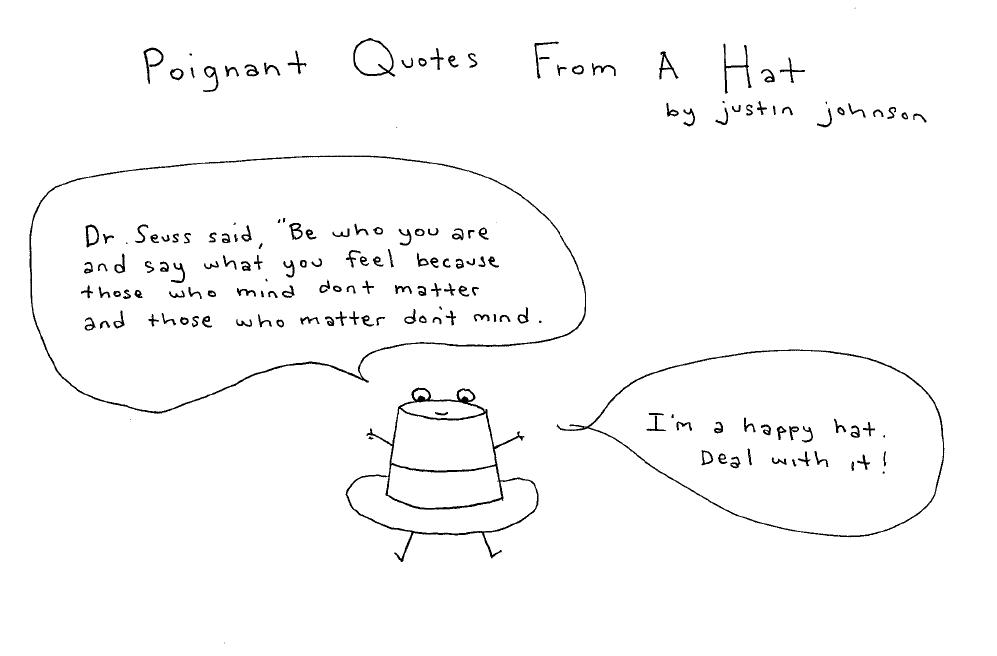 Poignant Quotes From A Hat
by justin johnson
Dr. Seuss said, "Be who you are
and say what you feel because
those who mind dont matter
and those who matter don't mind.
I'm a happy hat.
Deal with it!